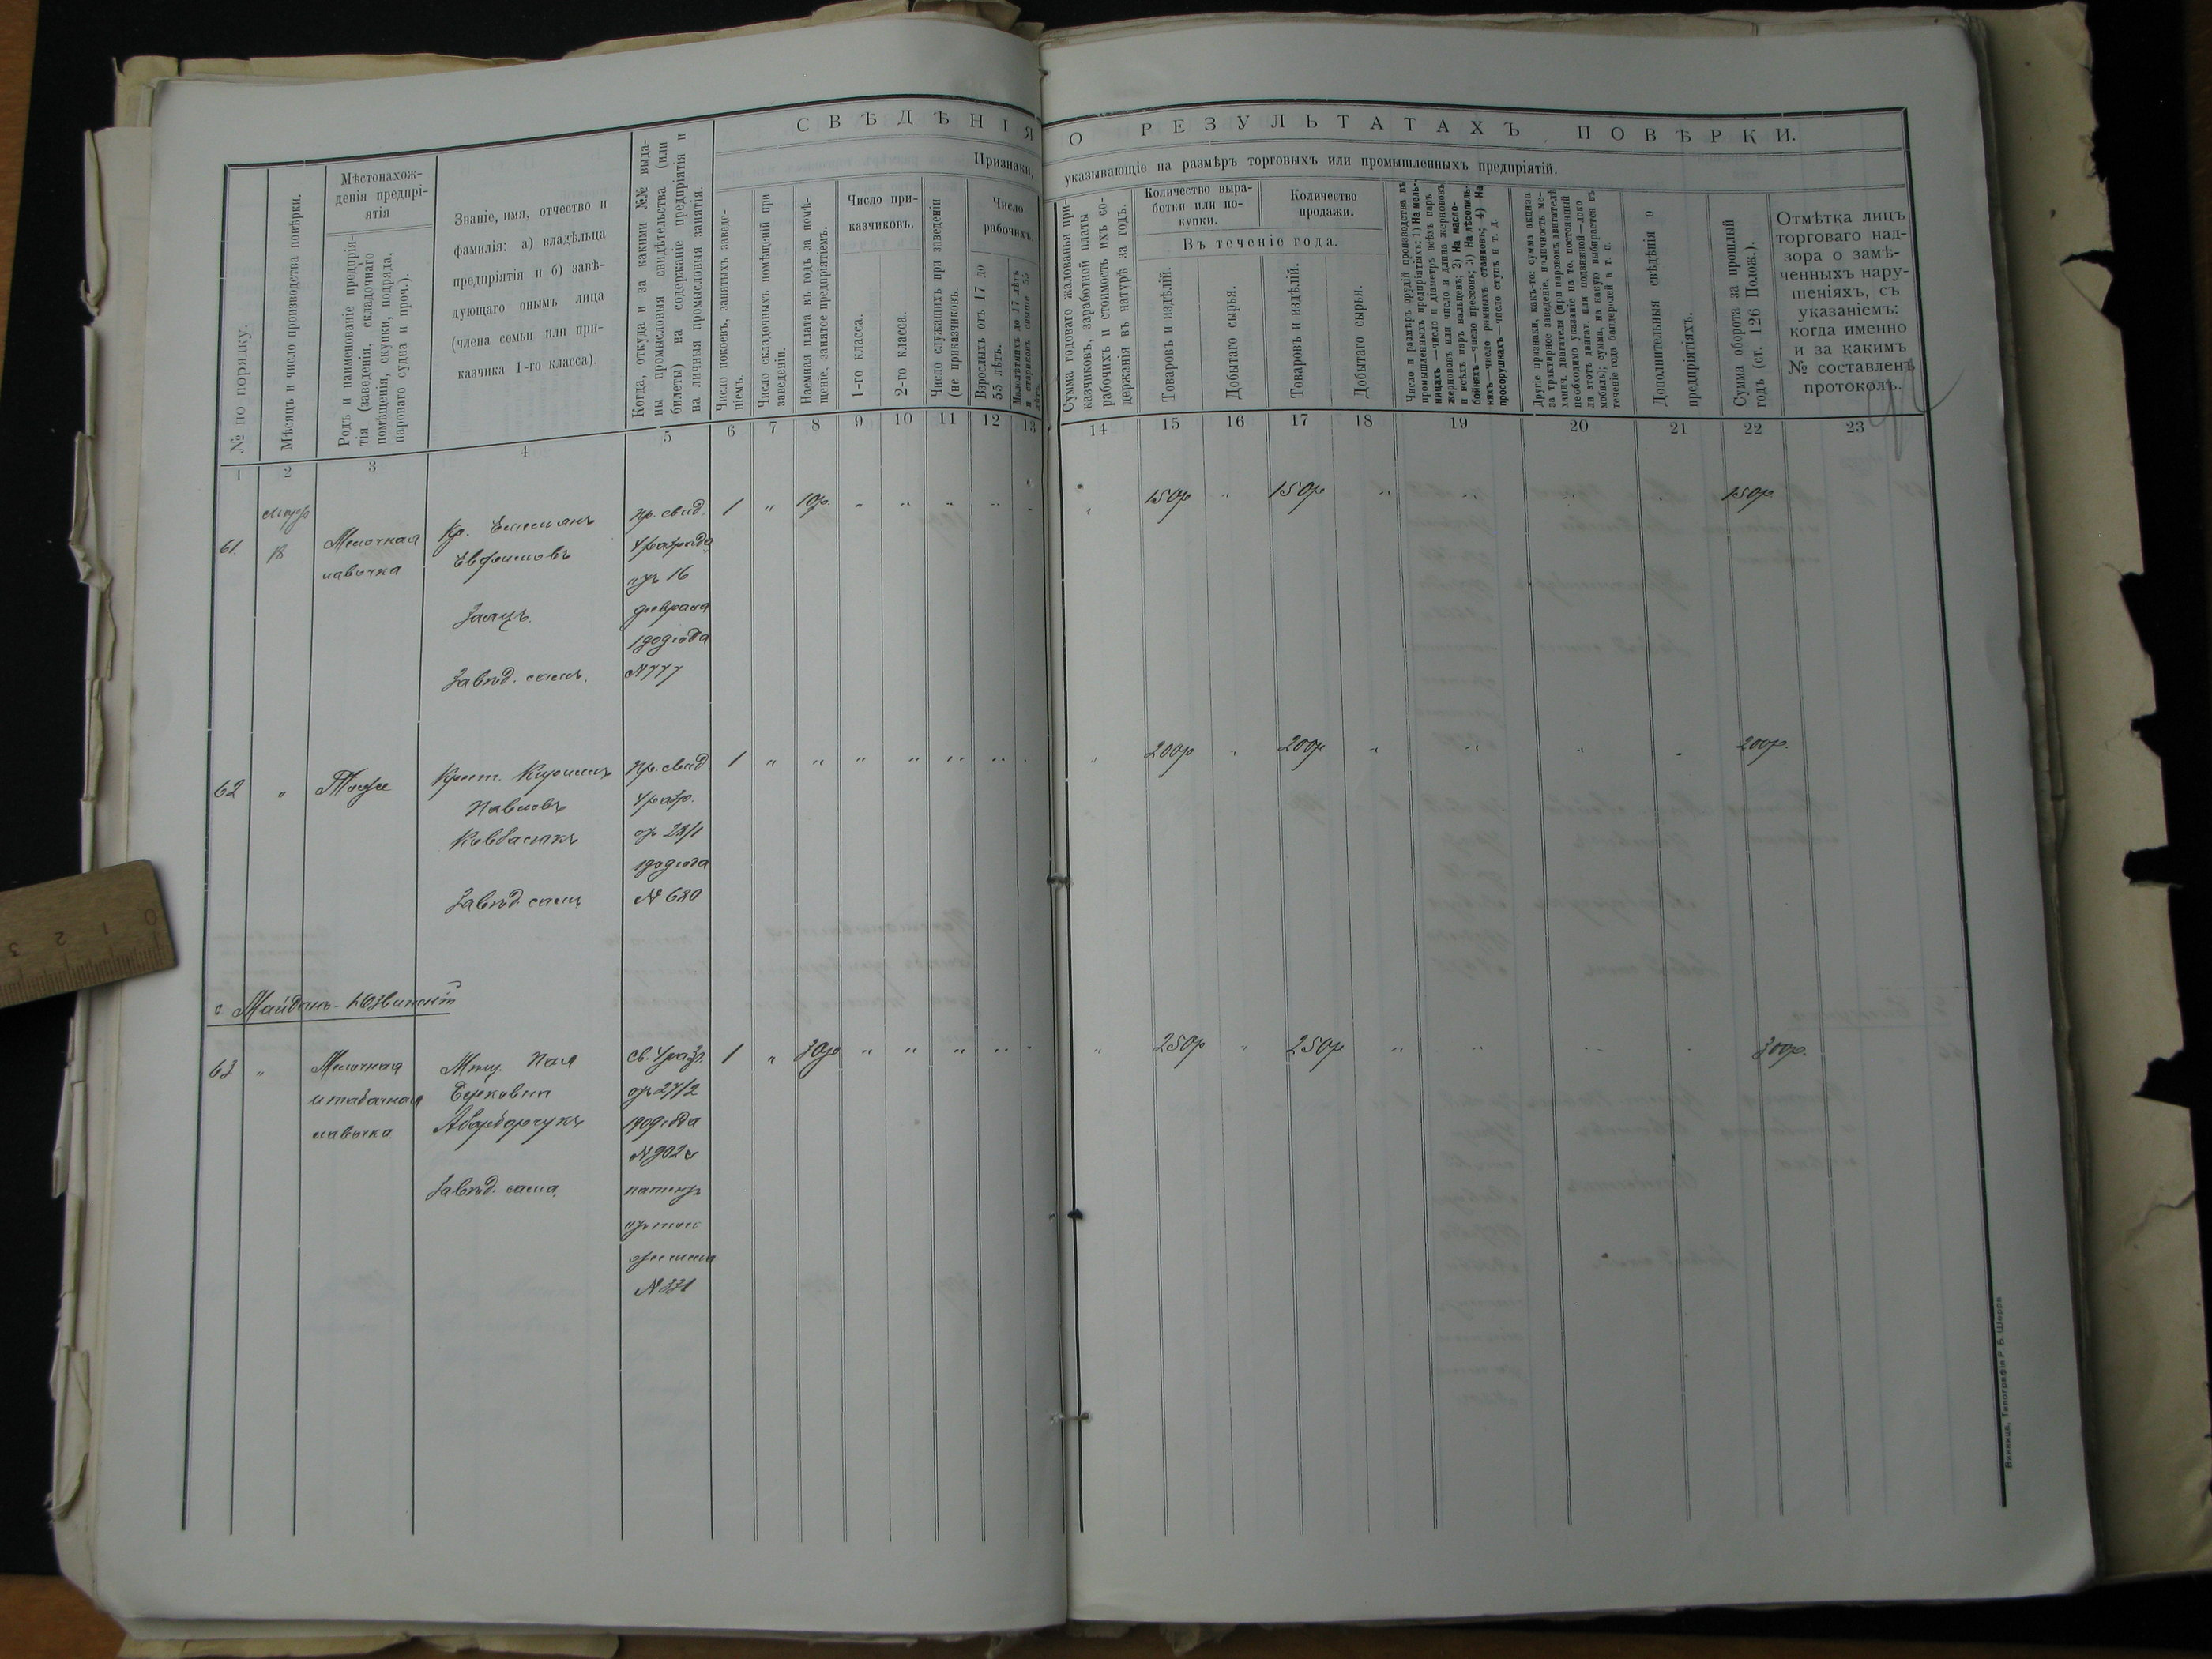 СВѢДѢНІЯ О РЕЗУЛЬТАТАХЪ ПОВѢРКИ.
Признаки, указывающіе на размѣръ торговыхъ или промышленныхъ предпріятій.
№ по порядку.
Мѣсяцъ и число производства повѣрки.
Мѣстонахож-
денія предпрі-
ятія
Родъ и наименованіе предпрія-
тія (заведенія, складочнаго
помѣщенія, скупки, подряда.
пароваго судна и проч.).
Званіе, имя, отчество и
фамилія: а) владѣльца
предпріятія и б) завѣ-
дующаго онымъ лица
(члена семьи или при-
казчика 1-го класса).
Когда, откуда и за какими №№ выда-
ны промысловыя свидѣтельства (или
билеты) на содержаніе предпріятія и
на личныя промысловыя занятія.
Число покоевъ, занятыхъ заведе-
ніемъ.
Число складочныхъ помѣщеній при
заведеніи.
Наемная плата въ годъ за помѣ-
щеніе, занятое предпріятіемъ.
Число при-
казчиковъ.
1-го класса.
2-го класса.
Число служащихъ при заведеніи
(не приказчиковъ).
Число
рабочихъ.
Взрослыхъ отъ 17 до
55 лѣтъ.
Малолѣтнихъ до 17 лѣтъ
и стариковъ свыше 55
лѣтъ.
Сумма годоваго жалованья при-
казчиковъ, заработной платы
рабочихъ и стоимость ихъ со-
держанія въ натурѣ за годъ.
Количество выра-
ботки или по-
купки.
Количество
продажи.
Въ теченіе года.
Товаровъ и издѣлій.
Добытаго сырья.
Товаровъ и издѣлій.
Добытаго сырья.
Число и размѣръ орудій производства въ
промышленныхъ предпріятіяхъ: 1) На мель-
ницахъ—число и діаметръ всѣхъ паръ
жернововъ или число и длина жернововъ
и всѣхъ паръ вальцевъ; 2) На масло-
бойняхъ—число прессовъ; 3) На лѣсопиль-
няхъ—число рамныхъ станковъ; 4) На
просорушкахъ—число ступъ и т. д.
Другіе признаки, какъ-то: сумма акциза
за трактирное заведеніе, наличность ме-
ханич. двигателя (при паровомъ двигателѣ
необходимо указаніе на то, постоянный
ли этотъ двигат. или подвижной—локо
мобиль); сумма, на какую выбирается въ
теченіе года бандеролей и т. п.
Дополнительныя свѣдѣнія о
предпріятіяхъ.
Сумма оборота за прошлый
годъ (ст. 126 Полож.).
Отмѣтка лицъ
торговаго над-
зора о замѣ-
ченныхъ нару-
шеніяхъ, съ
указаніемъ:
когда именно
и за какимъ
№ составленъ
протоколъ.
1 2 3 4 5 6 7 8 9 10 11 12 13 14 15 16 17 18 19 20 21 22 23
61. 18 Мелочная Кр. Емельянъ Пр. свид. 1 " 10р. " " " " " " 150р " 150р " " " " 150р
лавочка Евфимовъ 4 разряда
отъ 16
Заяцъ. февраля
1909 года
Завѣд. самъ. №777
62 " Тоже Крест. Кириллъ Пр. свид. 1 " " " " " " " " 200р " 200р " " " " 200р.
Павловъ 4 разр.
Ковбасюкъ от 28/1
1909 года
Завѣд самъ № 680
с Майданъ-Юзвинскій
63 " Мелочная Мѣщ. Пая Св. 4 разр. 1 " 30р " " " " " " 250р " 250р " " " " 300р.
и табачная Берковна от 27/2
лавочка 1909 года
№902 и
Завѣд. сама. патентъ
отъ того
№331
Винница, Типографія Р. Б. Шерръ